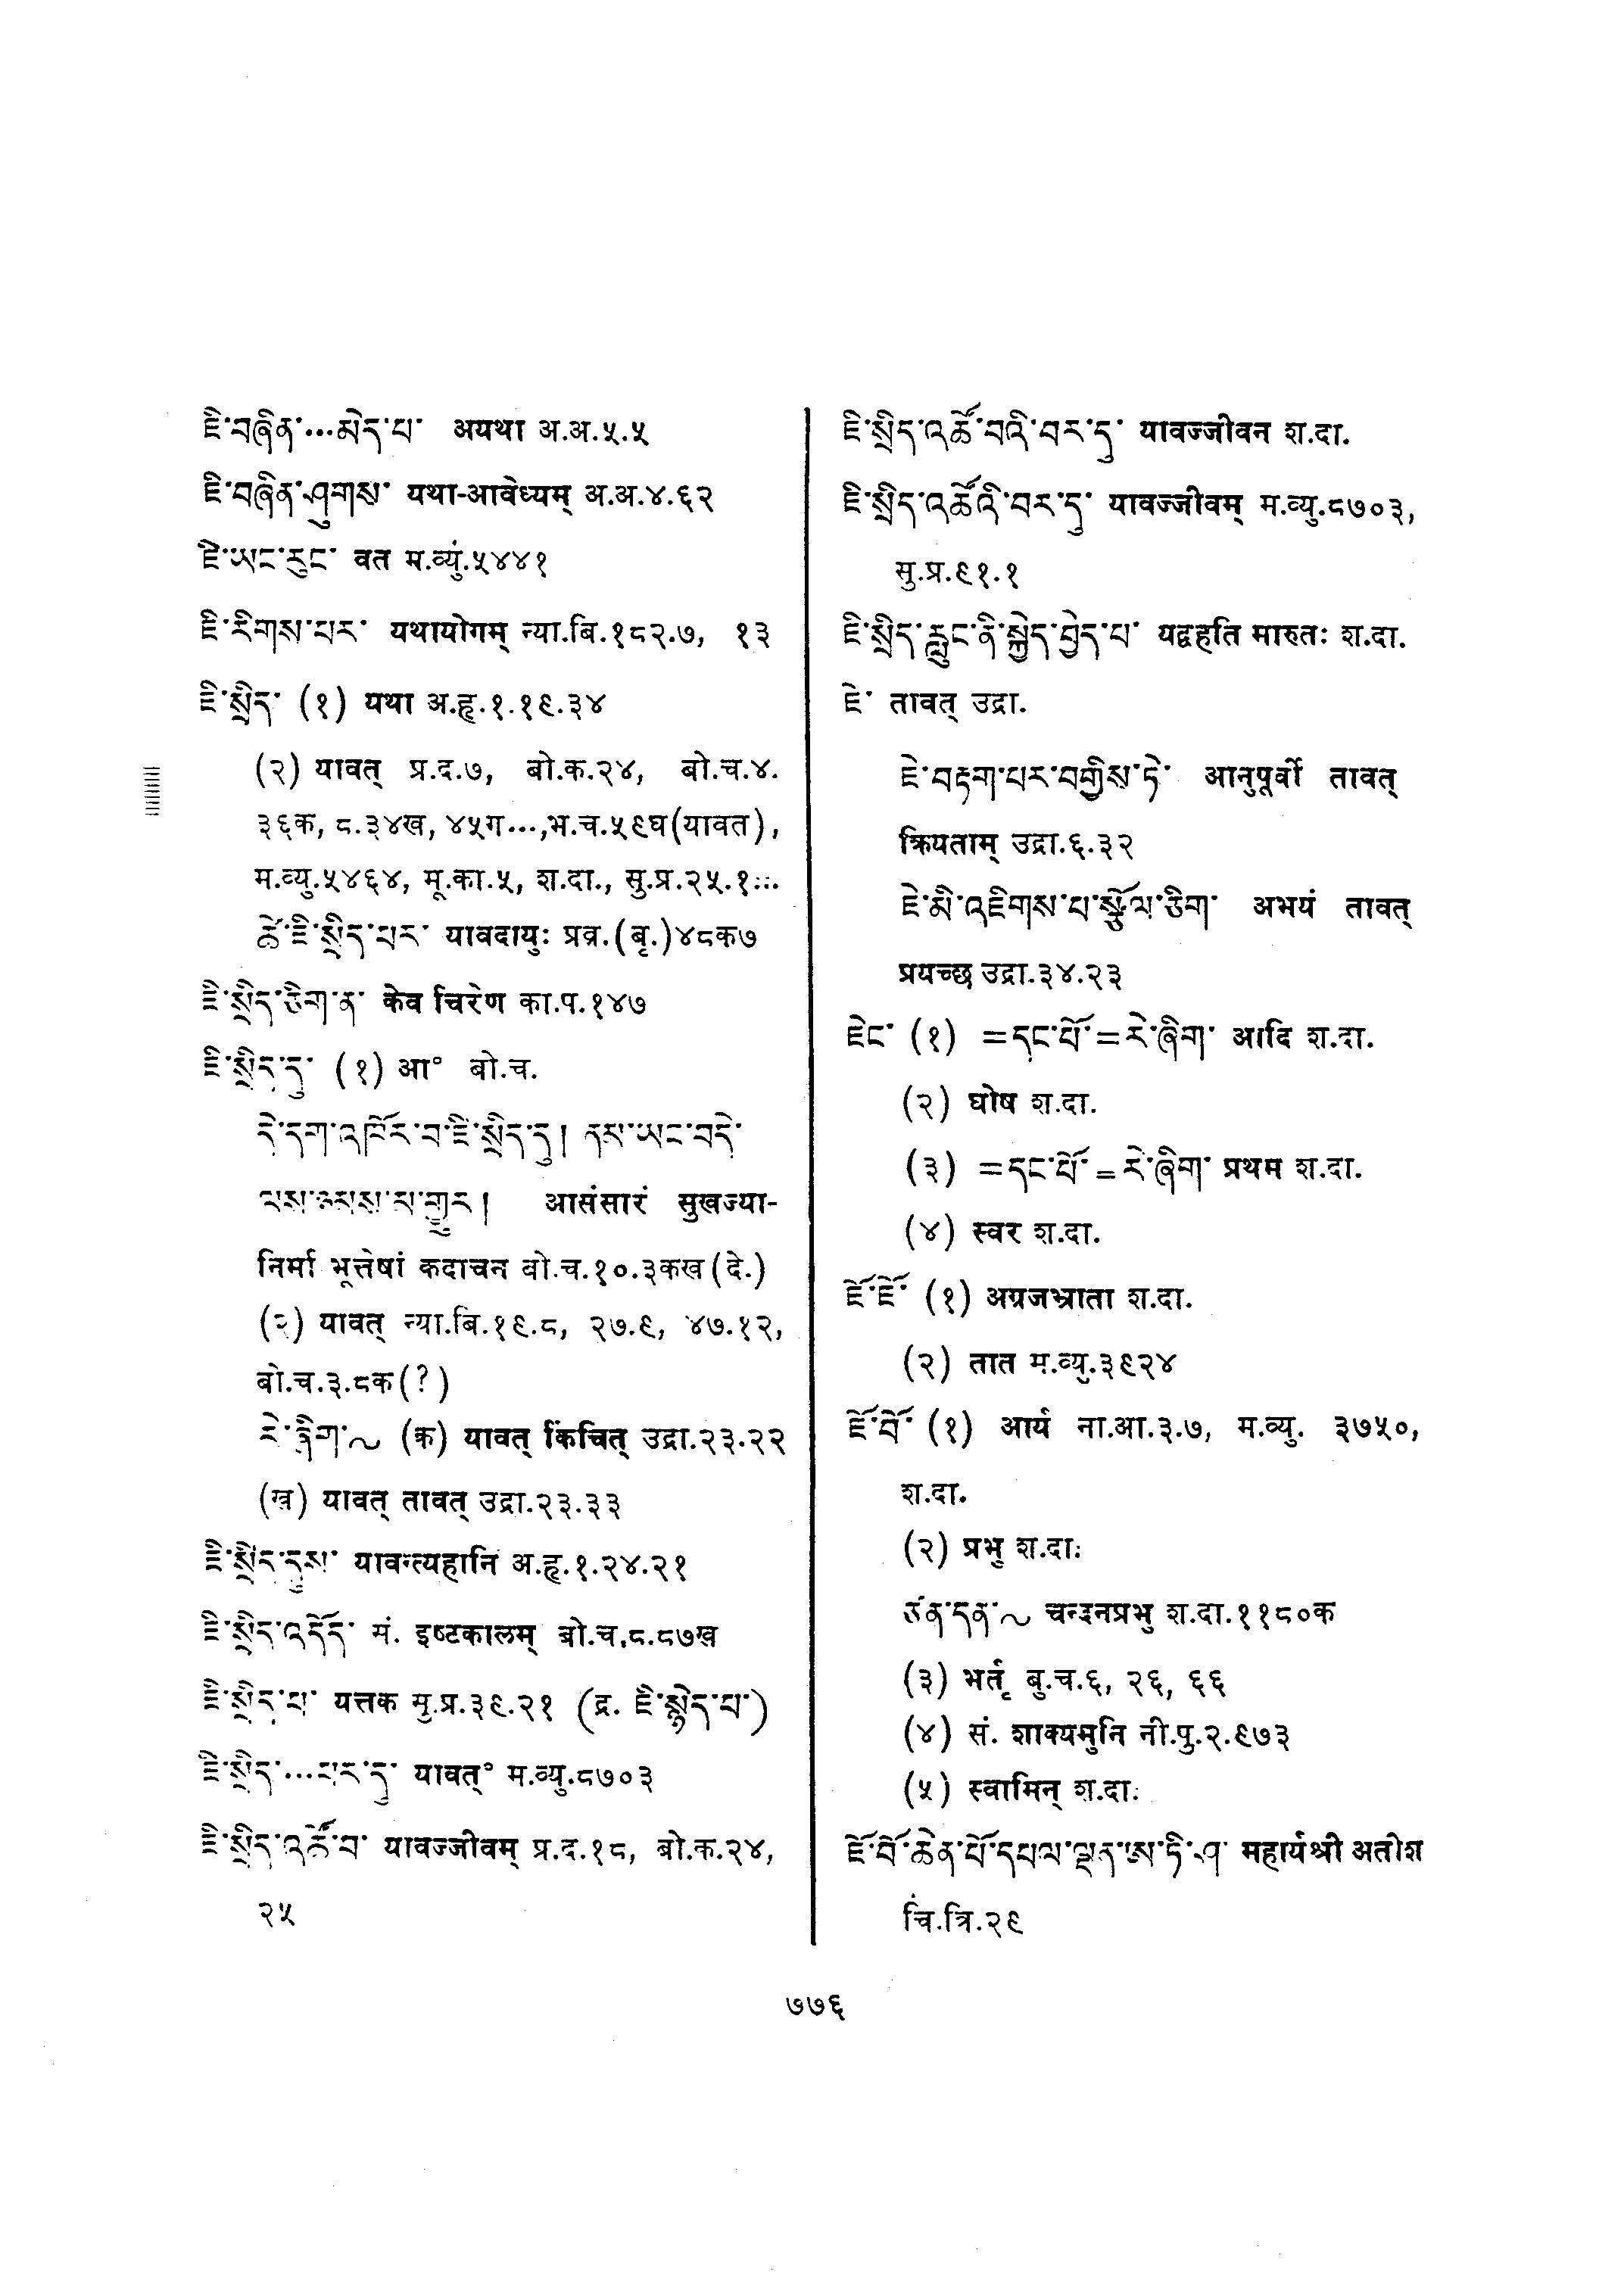 ཇི་བཞིན་...མེད་པ་ अयथा अ.अ.५.५
ཇི་བཞིན་ཤུགས་ यथा-आवेध्यम् अ.अ.४.६२
ཇི་ཡང་རུང་ वत म.व्यु.५४४१
ཇི་རིགས་པར་ यथायोगम् न्या.बि.१८२.७, १३
ཇི་སྲིད་ (१) यथा अ.हृ.१.१९.३४
(२) यावत् प्र.द.७, बो.क.२४, बो.च.४.
३६क, ८.३४ख, ४५ग...,भ.च.५९घ(यावत),
म.व्यु.५४६४, मू.का.५, श.दा., सु.प्र.२५.१...
ཚེ་ཇི་སྲིད་པར་ यावदायुः प्रव्र.(बृ.)४८क७
ཇི་སྲིད་ཅིག་ན་ केव चिरेण का.प.१४७
ཇི་སྲིད་དུ་ (१) आ° बो.च.
དེ་དག་འཁོར་བ་ཇི་སྲིད་དུ། ནས་ཡང་བདེ་
ལས་ཉམས་མ་གྱུར། आसंसारं सुखज्या-
निर्मा भूत्तेषां कदाचन बो.च.१०.३कख(दे.)
(२) यावत् न्या.बि.१९.८, २७.९, ४७.१२,
बो.च.३.८क(?)
རེ་ཞིག་~ (क) यावत् किंचित् उद्रा.२३.२२
(ख) यावत् तावत् उद्रा.२३.३३
ཇི་སྲིད་དུས་ यावन्त्यहानि अ.हृ.१.२४.२१
ཇི་སྲིད་འདོད་ मं. इष्टकालम् बो.च.८.८७ख
ཇི་སྲིད་པ་ यत्तक सु.प्र.३९.२१ (द्र. ཇི་སྙེད་པ་)
ཇི་སྲིད་...པར་དུ་ यावत्° म.व्यु.८७०३
ཇི་སྲིད་འཚོ་བ་ यावज्जीवम् प्र.द.१८, बो.क.२४,
२५
ཇི་སྲིད་འཚོ་བའི་བར་དུ་ यावज्जीवन श.दा.
ཇི་སྲིད་འཚོའི་བར་དུ་ यावज्जीवम् म.व्यु.८७०३,
सु.प्र.९१.१
ཇི་སྲིད་རླུང་ནི་སྐྱེད་བྱེད་པ་ यद्वहति मारुतः श.दा.
ཇེ་ तावत् उद्रा.
ཇེ་བརྟག་པར་བགྱིས་ཏེ་ आनुपूर्वी तावत्
क्रियताम् उद्रा.६.३२
ཇེ་མི་འཇིགས་པ་སྩོལ་ཅིག་ अभयं तावत्
प्रयच्छ उद्रा.३४.२३
ཇེང་ (१) =དང་པོ་=རེ་ཞིག་ आदि श.दा.
(२) घोष श.दा.
(३) =དང་པོ་=རེ་ཞིག་ प्रथम श.दा.
(४) स्वर श.दा.
ཇོ་ཇོ་ (१) अग्रजभ्राता श.दा.
(२) तात म.व्यु.३९२४
ཇོ་བོ་ (१) आर्य ना.आ.३.७, म.व्यु. ३७५०,
श.दा.
(२) प्रभु श.दा.
ཙན་དན་~ चन्दनप्रभु श.दा.११८०क
(३) भर्तृ बु.च.६, २६, ६६
(४) सं. शाक्यमुनि नी.पु.२.९७३
(५) स्वामिन् श.दा.
ཇོ་བོ་ཆེན་པོ་དཔལ་ལྡན་ཨ་ཏི་ཤ་ महार्यश्री अतीश
चि.त्रि.२९
७७६